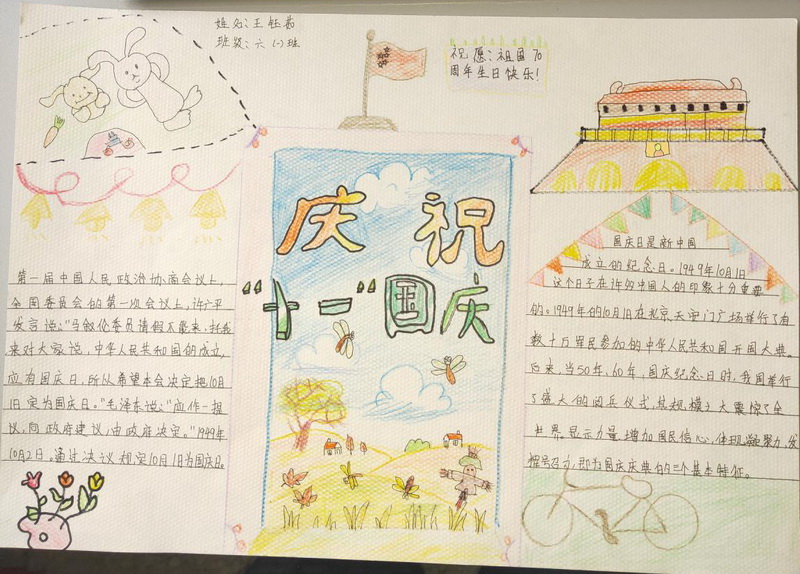 姓名:王钰茜
班级:六(一)班
祝愿:祖国70
周年生日快乐!
庆祝
"十一"国庆
第一届中国人民政治协商会议上,
全国委员会的第一次会议上,许广平
发言说:"马叙伦委员请假不能来,托我
来对大家说,中华人民共和国的成立,
应有国庆日,所以希望本会决定把10月
1日定为国庆日。"毛泽东说:"应作一提
议,向政府建议,由政府决定。"1949年
10月2日。通过决议规定10月1日为国庆日。
国庆日是新中国
成立的纪念日。1949年10月1日
这个日子在许的中国人的印象十分重要
的。1949年的10月1日在北京天安门广场举行了有
数十万军民参加的中华人民共和国开国大典。
后来,当50年、60年,国庆纪念日时,我国举行
了盛大的阅兵仪式,其规模之大震惊了全
世界。显示力量增加国民信心,体现凝聚力,发
挥号召力,即为国庆庆典的三个基本特征。